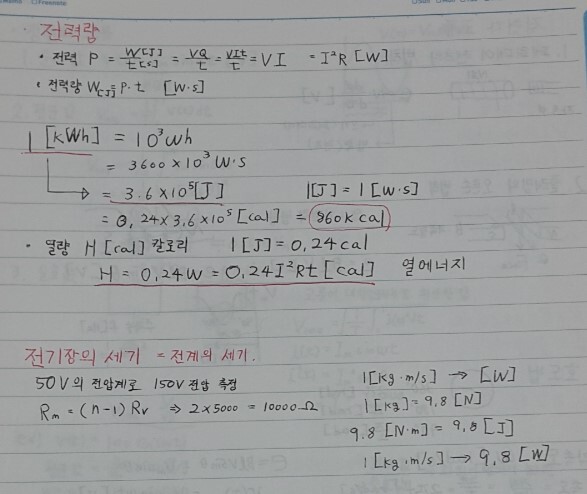 · 전력량
· 전력 P = W[J]/t[s] = VQ/t = VIt/t = VI = I²R [W]
· 전력량 W[J]= P·t [W·s]
1 [kWh] = 10³Wh
= 3600 × 10³ W·s
→ = 3.6 × 10⁵[J] 1[J] = 1 [W·s]
= 0,24 × 3,6 × 10⁵ [cal] = 860k cal
· 열량 H [cal] 칼로리 1 [J] = 0,24 cal
H = 0,24W = 0,24 I²Rt [cal] 열에너지
전기장의 세기 = 전계의 세기.
50V의 전압계로 150V 전압 측정 1[kg·m/s] → [W]
Rm = (n-1) Rv ⇒ 2×5000 = 10000Ω 1[kg] = 9,8 [N]
9.8 [N·m] = 9,8 [J]
1 [kg·m/s] → 9,8 [W]